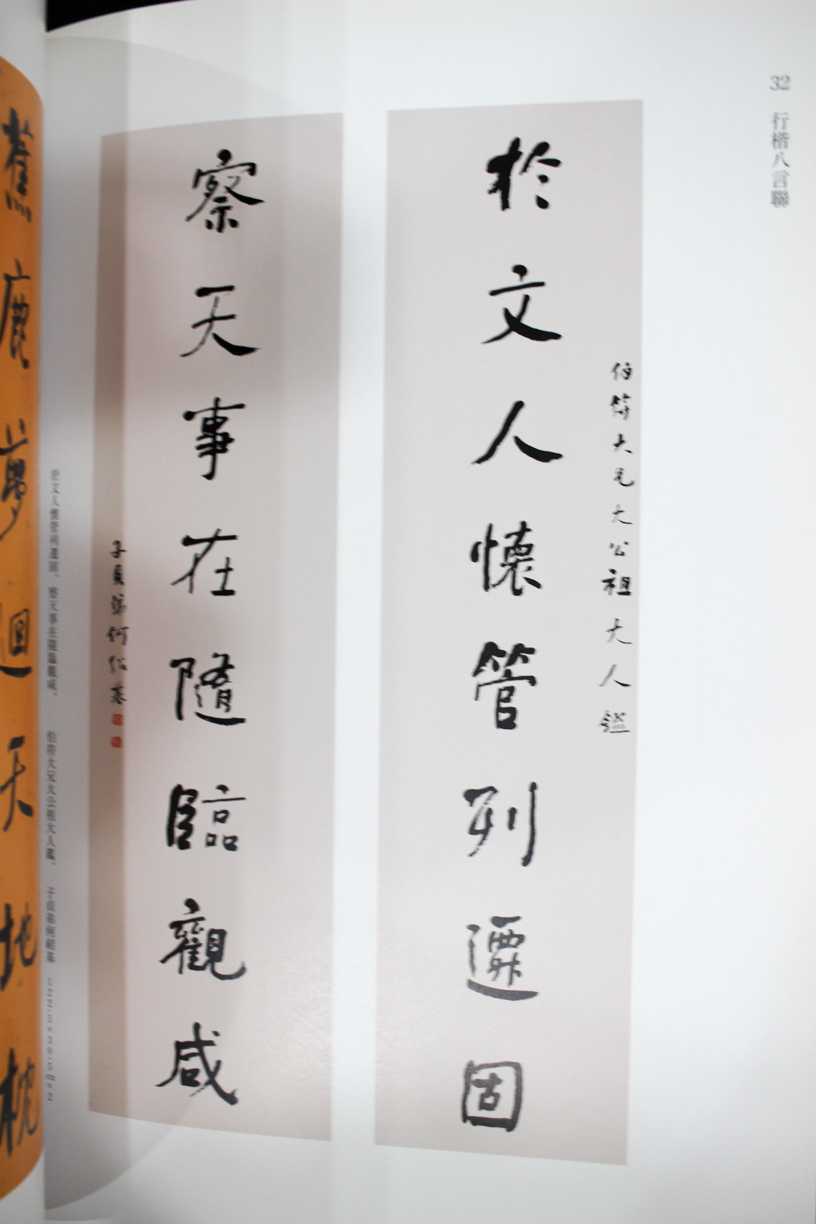 32　行楷八言聯
伯符大兄大公祖大人鑑
於文人懷管列遷固
察天事在隨臨觀咸
子貞弟何紹基
於文人懷管列遷固、察天事在隨臨觀咸、　伯符大兄大公祖大人鑑、　子貞弟何紹基
蕉鹿夢迴天地枕